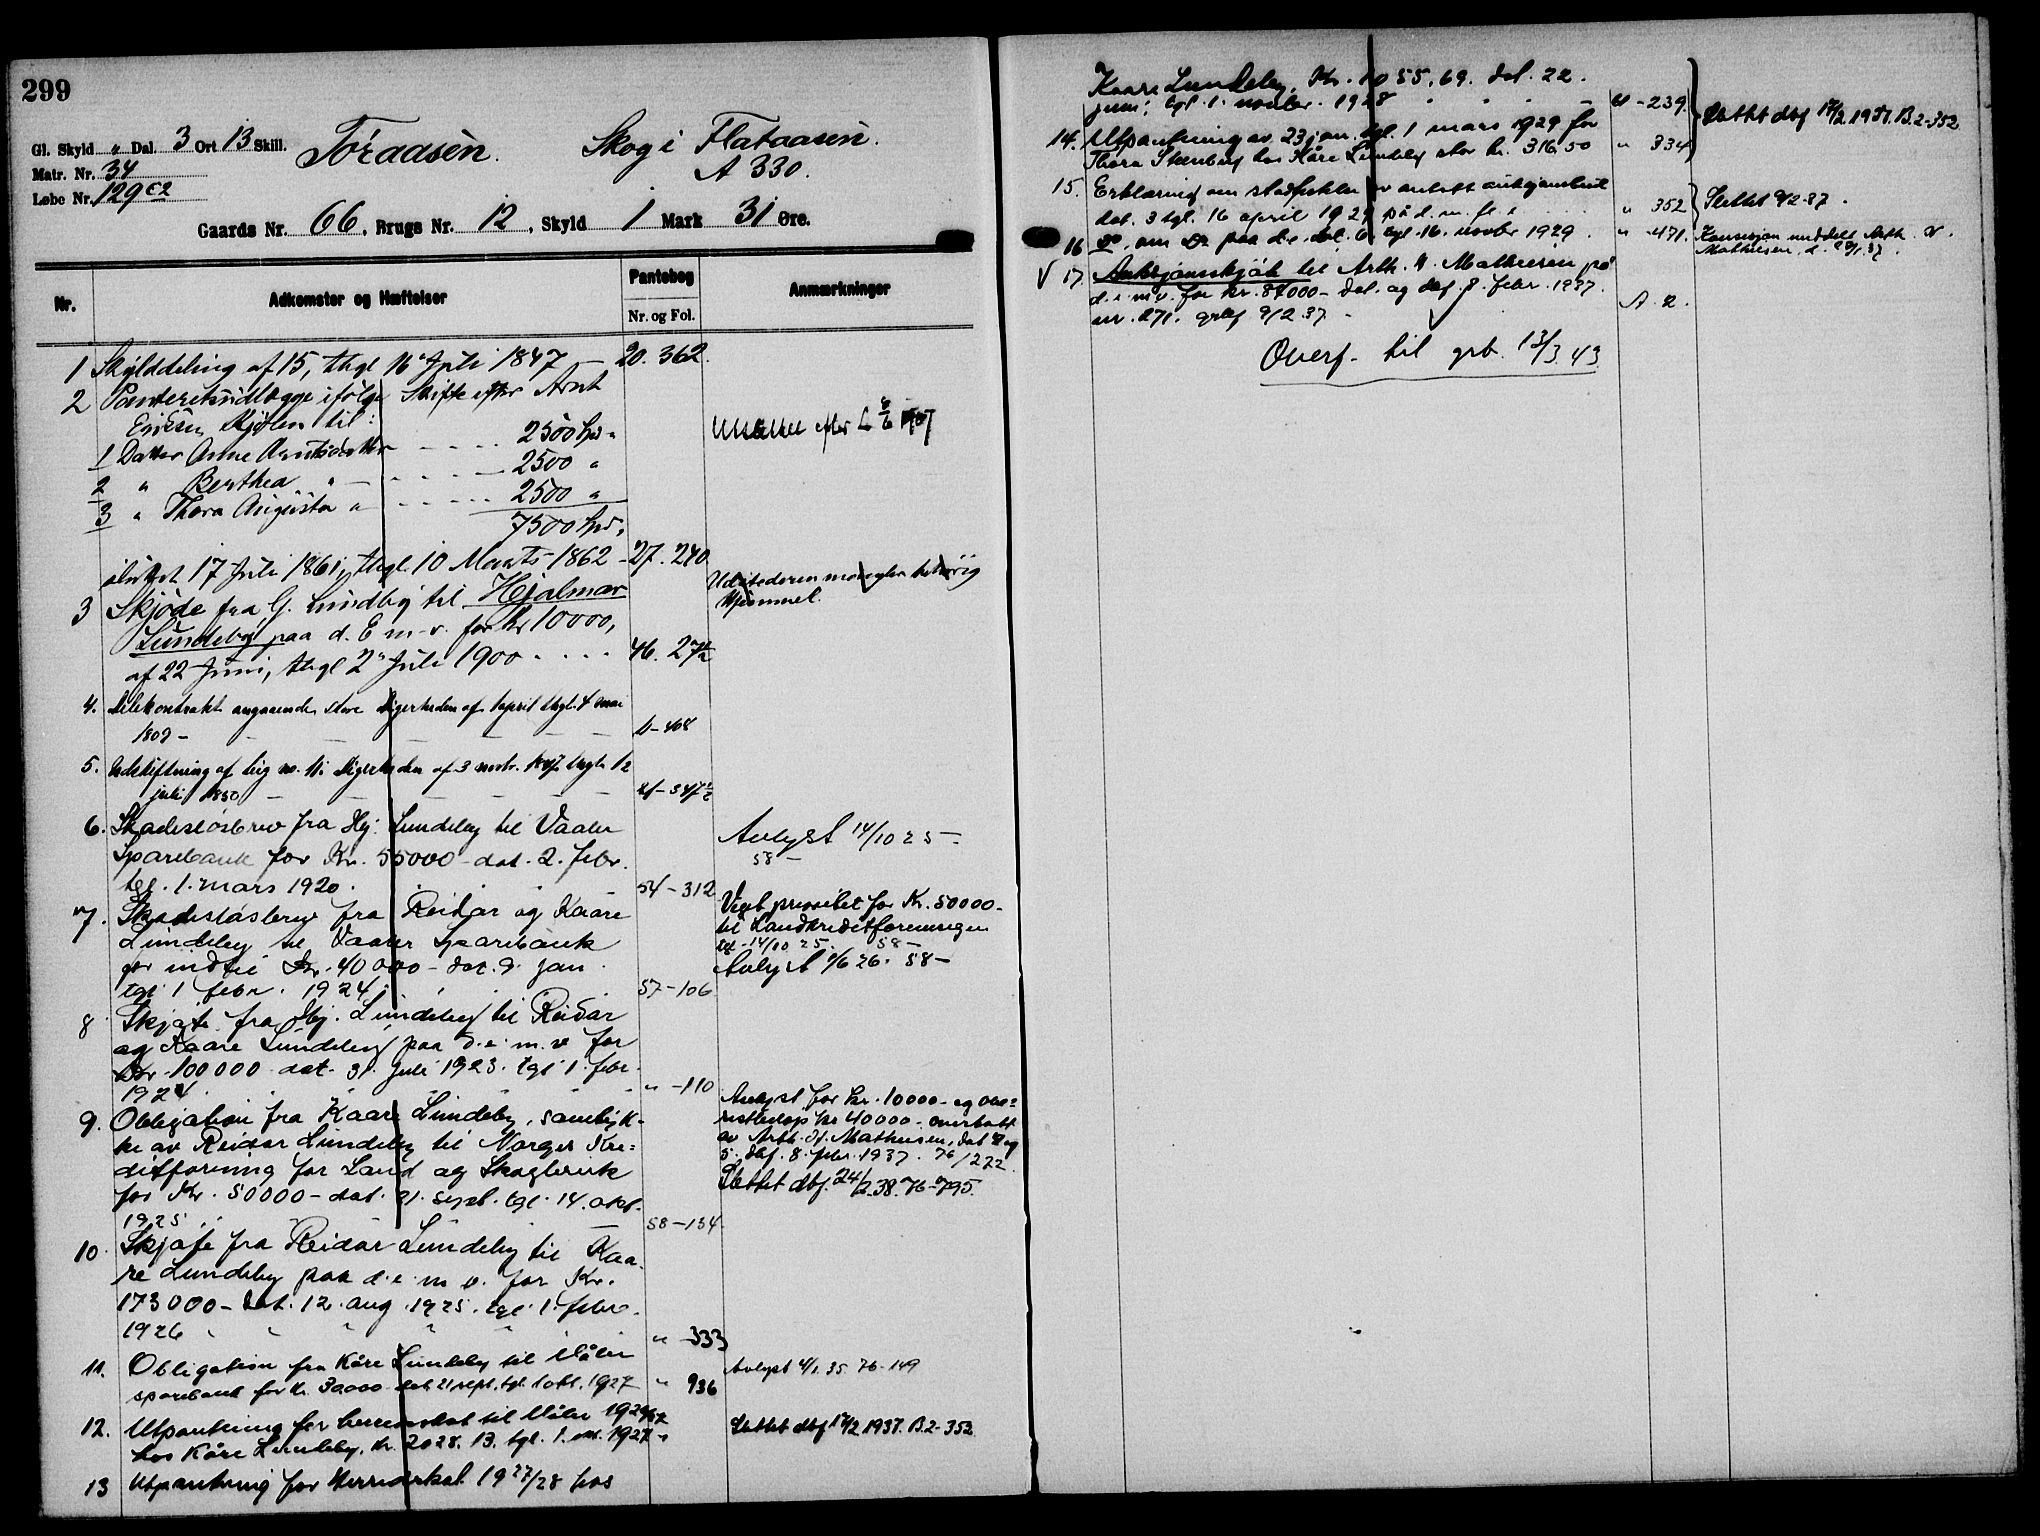 299
Gl. Skyld " Dal. 3 Ort 13 Skill.
Matr. Nr. 34
Løbe Nr. 129 c2
Toraasen. Skog i Flataasen.
A 330.
Gaards Nr. 66, Brugs Nr. 12, Skyld 1 Mark 31 Øre.
Nr. Adkomster og Hæftelser Pantebog Nr. og Fol. Anmærkninger
1 Skylddeling af 15, thgl 16 Juli 1847 — 20. 362.
2 Panteretsudlægge ifølge Skifte efter Arnt
Eriksen Kjølen til:
1 Datter Anne Arntsdatter - - - - 2500 Spd "
2 " Berthea " - - - - 2500 "
3 " Thora Augusta " - - - - 2500 "
7500 Spd "
sluttet 17 Juli 1861, thgl 10 Marts 1862 - 27. 240.
Udslettet efter L 8/6
3 Skjøde fra G. Lundby til Hjalmar
Lundeby paa d. E m. v. for Kr 10000,
af 22 Juni, thgl 2 Juli 1900 - - - - 46. 274
Udstederen mangler behørig
Hjemmel.
4. Delekontrakt angaaende store Digerheden af april thgl. 4 mai
1809 - - - - - - 11-468
5. Udskiftning af teig no. 11 i Digerheden af 3 novbr. thgl. 12
juli 1850 - - - - - - 21-347
6. Skadesløsbrev fra Hj. Lundeby til Vaaler
Sparebank for Kr. 55000 - dat. 2. febr.
tgl. 1. mars 1920. 54-312
Avlyst 14/10 25 -
58 -
7. Skadesløsbrev fra Reidar og Kaare
Lundeby til Vaaler Sparebank
for indtil Kr. 40000 - dat. 9. jan.
tgl 1 febr. 1924. 57-106
Veget prioritet for Kr. 50000 -
til Landkreditforeningen
tgl. 14/10 25. 58 -
Avlyst /6 26. 58 -
8 Skjøte fra Hj. Lundeby til Reidar
og Kaare Lundeby paa d. e. m. v for
Kr 100000 dat. 31. juli 1923. tgl 1. febr.
1924 " - 110
9. Obligation fra Kaare Lundeby, samtyk-
ke av Reidar Lundeby til Norges Kre=
ditforening for Land og Skogbruk
for Kr. 50000 - dat. 21. sept. tgl. 14. okt.
1925 58-134
Avlyst for kr. 10000 - og
restbeløp kr 40000 - overtatt
av Arth. H. Mathiesen, dat og
5. dbf. 8. febr. 1937. 76/272
Slettet dbf. 24/2.38. 76-795.
10. Skjøte fra Reidar Lundeby til Kaa-
re Lundeby paa d. e. m v. for Kr.
173000 - dat. 12. aug. 1925. tgl. 1. febr.
1926 " - 333
11. Obligation fra Kåre Lundeby til Våler
sparebank for kr. 30000 dat. 21 sept. tgl. 1 okt. 1927 " 936
Avlyst 4/1. 35 76-149
12. Utpantning for herredskat til Våler
hos Kåre Lundeby, kr. 2028.13. tgl. 1. 1927 "
Slettet dbf 17/2 1937. B.2-352
13 Utpantning for Herredskat 1927/28 hos
Kaare Lundeby, Kr. 1055,69. dat. 22.
juni; tgl. 1. novbr. 1928 " - 239.
14. Utpantning av 23 jan. tgl. 1 mars 1929 for
Thora Stenberg hos Kåre Lundeby stor kr. 316.50 " 334
Slettet dbf 17/2 1937. B.2-352
15. Erklæring om for avholdt auksjonsbud
dat. 3 tgl. 16 april 1929 på d. m. fl. e. " 352
Slettet 9/2-37.
16 do. om do paa d.e. dat. 6, tgl. 16. novbr 1929. " -471.
Konsesjon meddelt Arth. N.
Mathiesen, d. /1.37.
V 17. Auksjonsskjøte til Arth. H. Mathiesen på
d. e. m v. for kr. 87000 - dat. og dbf. 8. febr. 1937.
nr. 271. 9/2 37. - A. 2.
Overf. til grb. 13/3 43.